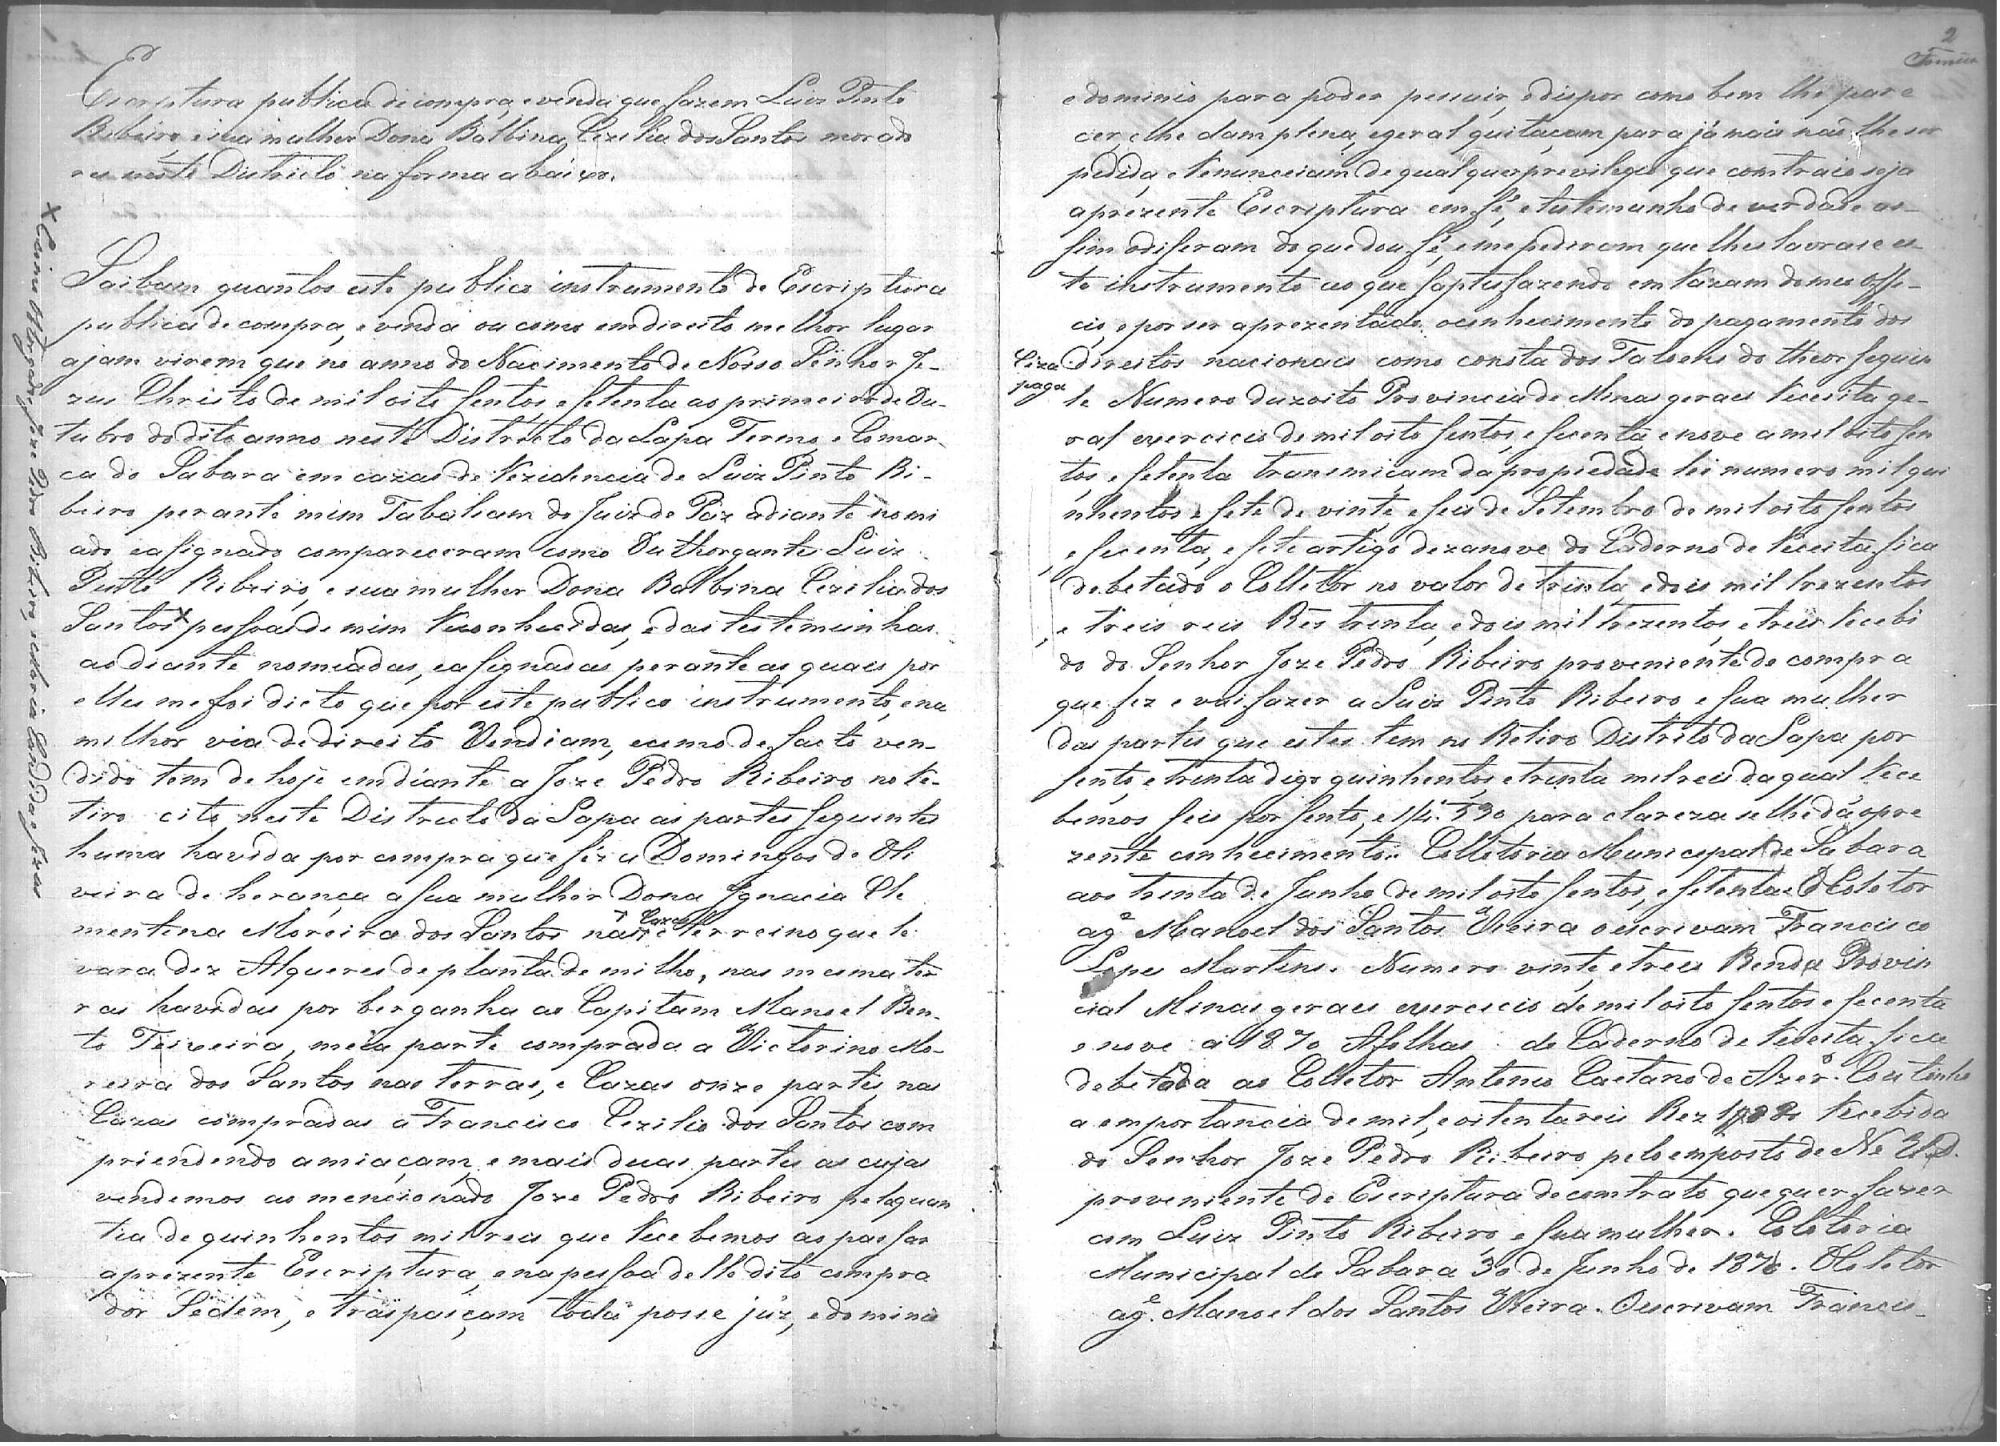 Escriptura publica de compra, e venda que fazem Luiz Pinto
Ribeiro, e sua mulher Dona Balbina Cezilia dos Santos morado
res neste Districto na forma abáixo.
Saibam quantos este publico instrumento de Escriptura
publica de compra, e venda ou como em direito melhor lugar
ajam virem que no anno do Nacimento de Nosso Senhor Je-
zus Christo de mil oito sentos, e setenta ao primeiro de Ou-
tubro do dito anno neste Districto da Lapa Termo e Comar
ca do Sabara em cazas de Rezidencia de Luiz Pinto Ri-
beiro perante mim Tabaliam do Juiz de Páz adiante nomi
ado e asignado compareceram como Outhorgante Luiz
Pinto Ribeiro, e sua mulher Dona Balbina Cezilia dos
Santos x pessoas de mim Reconhecidas, e das testemunhas
ao diante nomeadas, e asignadas perante as quais por
elles me foi dicto que por este publico instrumento, e na
milhor via de direito Vendiam, e como de facto ven-
dido tem de hoje em diante a Joze Pedro Ribeiro no Re-
tiro cito neste Districto da Lapa as partes seguintes
huma havida por compra que fés a Domingos de Oli
veira de herança a sua mulher Dona Ignacia Cle
mentina Moreira dos Santos nas Cazas e terreino que le
vara dez Alqueres de planta de milho, nas mesma ter
ras havidas por berganha ao Capitam Manoel Ben-
to Teixeira, meia parte comprada a Victorino Mo-
reira dos Santos nas terras, e Cazas onze partes nas
Cazas compradas a Francisco Cezilio dos Santos com
priendendo amiaçam, e mais duas partes as cujas
vendemos ao mencionado Joze Pedro Ribeiro pela quan
tia de quinhentos mil reis que Recebemos ao passar
a prezente Escriptura, e na pessoa delle dito compra
dor Sedem, e traspasçam toda posse júz, e domino
2
e dominio para poder pessuir, e dispor como bem lhe pare
cer, e lhe dam plena, e geral quitaçam para já mais não lhe ser
pedida, e Renunceiam de qual quer previlegio que contraio seja
a prezente Escriptura em fé, e tistimunho de verdade as-
sim odiseram do que dou fé, e me pediram que lhes lavrase es-
te instrumento ao que saptisfazendo em Razam do meu offi-
cio, e por ser aprezentado o conhecimento do pagamento dos
Ciza
paga
direitos nacionais como consta dos Taloens do theor seguin
te Numero dazoito Provincia de Minas geraes Receita ge-
ral exercicio de mil oito sentos, e secenta e nove a mil oito sen
tos, e setenta transmicam da propiedade lei numero mil qui
nhentos e sete de vinte e seis de Setembro de mil oito sentos
e secenta, e sete artigo dezanove do Caderno de Receita fica
debetado o Colletor no valor de trinta, e dois mil trezentos
e treis reis Res trinta, e dois mil trezentos, e treis Recebi
do do Senhor Joze Pedro Ribeiro proveniente de compra
que fez e vai fazer a Luiz Pinto Ribeiro e sua mulher
das partes que estes tem no Retiro Distrito da Lapa por
sento, e trinta digo quinhentos, e trinta mil reis da qual Rece
bemos seis por sento, e para clareza se lhe dá o pre
zente conhecimento. Colletoria Municipal de Sabara
aos trenta de Junho de mil oito sentos, e setenta. O Coletor
agᵉ Manoel dos Santos Vieira o escrivam Francisco
Lopes Martins. Numero vinte, e treis Renda Provin
cial Minas geraes exercicio de mil oito sentos e secenta
e nove a 1870 Afolhas do Caderno de Receita fica
debetada ao Colletor Antonio Caetano de Azerº Coutinho
a emportancia de mil, e oitenta reis Rez 1$080 Recebida
do Senhor Joze Pedro Ribeiro pelo emposto de
proveniente de Escriptura de contrato que quer fazer
com Luiz Pinto Ribeiro, e sua mulher. Coletoria
Municipal de Sabará 30 de Junho de 1870. O Coletor
agᵉ Manoel dos Santos Vieira. O escrivam Francis-